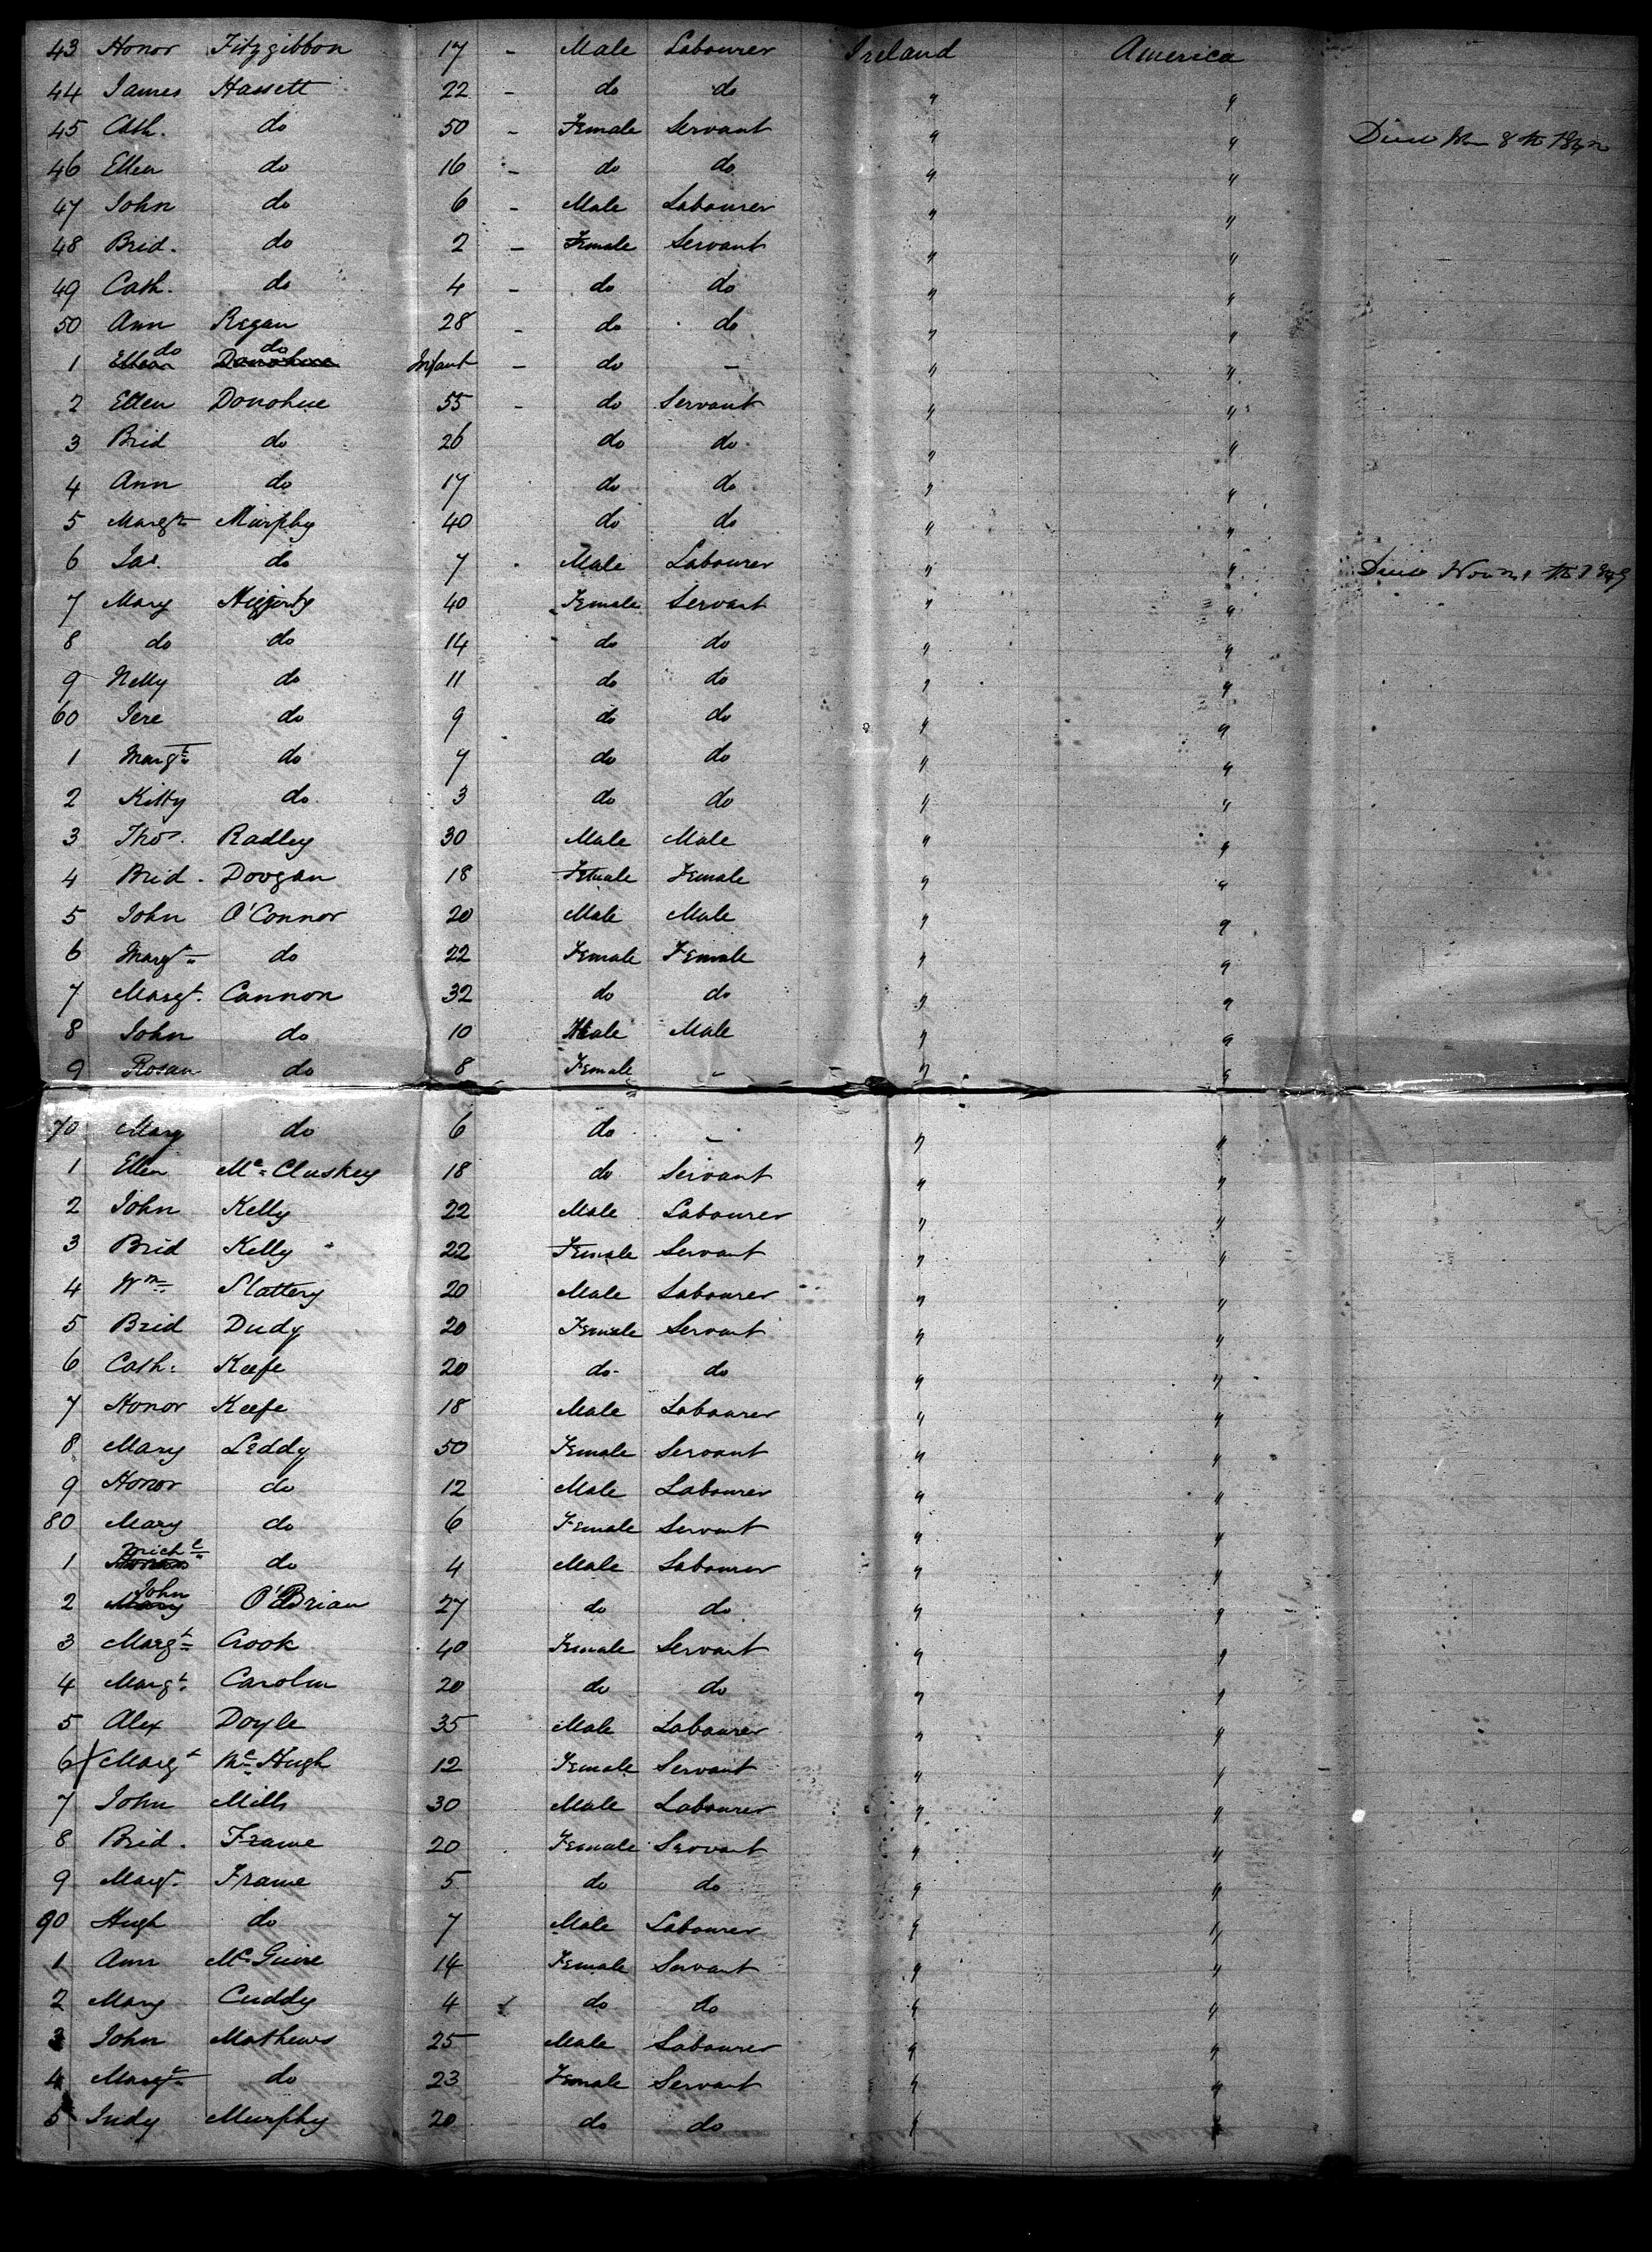 43 Honor Fitzgibbon 17 - Male Labourer Ireland America
44 James Hassett 22 - do do " "
45 Cath. do 50 - Female Servant " " Died 8th
46 Ellen do 16 - do do " "
47 John do 6 - Male Labourer " "
48 Brid. do 2 - Female Servant " "
49 Cath. do 4 - do do " "
50 Ann Regan 28 - do do " "
do do
1 Ellen Donohue Infant - do - " "
2 Ellen Donohue 55 - do Servant " "
3 Brid do 26 do do " "
4 Ann do 17 do do " "
5 Margt Murphy 40 do do " "
6 Jas. do 7 Male Labourer " " Died
7 Mary 40 Female Servant " "
8 do do 14 do do " "
9 Nelly do 11 do do " "
60 Jere do 9 do do " "
1 Margt do 7 do do " "
2 Kitty do 3 do do " "
3 Thos. Radley 30 Male Male " "
4 Brid. Doogan 18 Female Female " "
5 John O'Connor 20 Male Male " "
6 Margt do 22 Female Female " "
7 Margt. Cannon 32 do do " "
8 John do 10 Male Male " "
9 Rosan do 8 Female - " "
70 Mary do 6 do - " "
1 Ellen Mc Cluskey 18 do Servant " "
2 John Kelly 22 Male Labourer " "
3 Brid Kelly 22 Female Servant " "
4 Wm Slattery 20 Male Labourer " "
5 Brid Dudy 20 Female Servant " "
6 Cath: Keefe 20 do do " "
7 Honor Keefe 18 Male Labourer " "
8 Mary Leddy 50 Female Servant " "
9 Honor do 12 Male Labourer " "
80 Mary do 6 Female Servant " "
Michl
1 Honor do 4 Male Labourer " "
John
2 Mary O'Brian 27 do do " "
3 Margt Crook 40 Female Servant " "
4 Margt. Carolin 20 do do " "
5 Alex Doyle 35 Male Labourer " "
6 X Margt Mc Hugh 12 Female Servant " "
7 John Mills 30 Male Labourer " "
8 Brid. Frame 20 Female Servant " "
9 Margt. Frame 5 do do " "
90 Hugh do 7 Male Labourer " "
1 Ann Mc Guire 14 Female Servant " "
2 Mary Cuddy 4 do do " "
3 John Mathews 25 Male Labourer " "
4 Margt do 23 Female Servant " "
5 Judy Murphy 20 do do " "